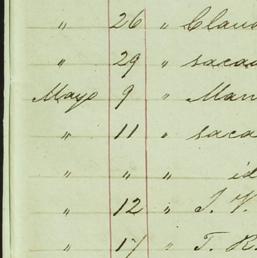 " 26 " Clau
" 29 " saca
Mayo 9 " Man
" 11 " saca
" " " id
" 12 " J. V.
" 17 " T. R.